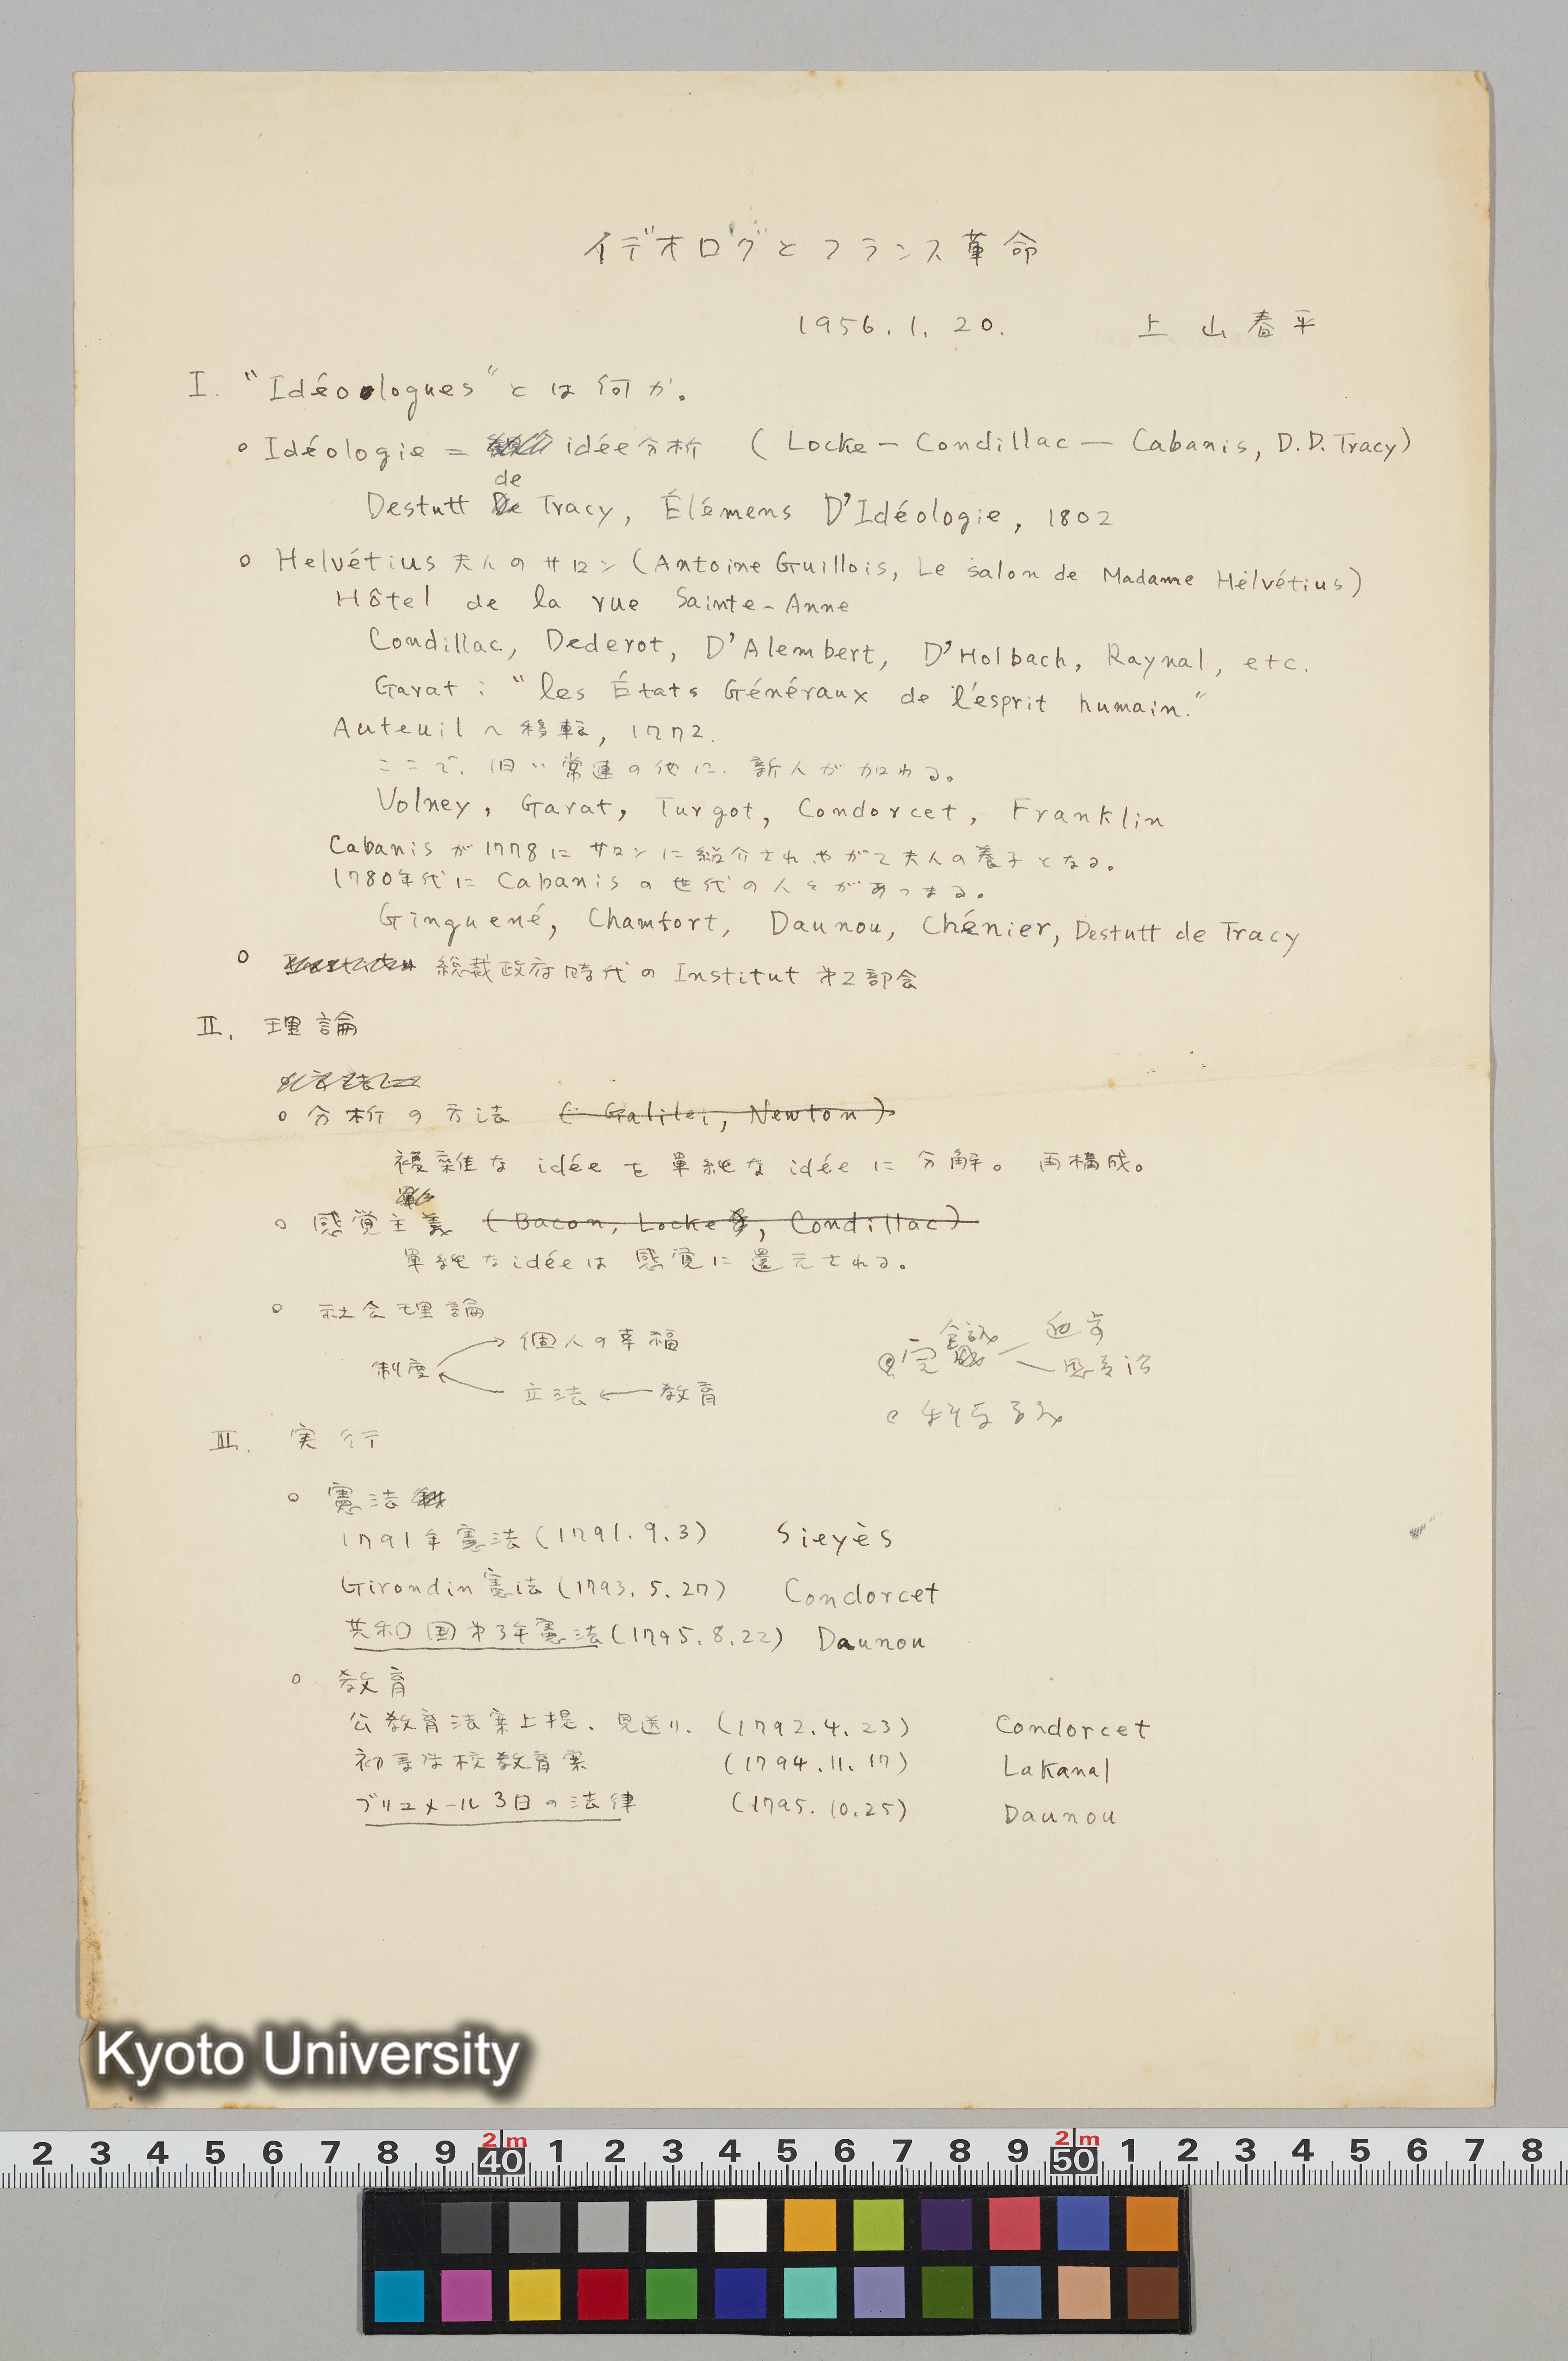 イデオログとフランス革命
1956.1.20. 上山春平
I. "Idéologues"とは何か。
○ Idéologie = idée分析 (Locke — Condillac — Cabanis, D.D. Tracy)
de
Destutt Tracy, Élémens D'Idéologie, 1802
○ Helvétius夫人のサロン (Antoine Guillois, Le salon de Madame Helvétius)
Hôtel de la rue Sainte-Anne
Condillac, Dederot, D'Alembert, D'Holbach, Raynal, etc.
Garat : "les États Généraux de l'esprit humain."
Auteuilへ移転, 1772.
ここで、旧い常連の他に、新人が加わる。
Volney, Garat, Turgot, Condorcet, Franklin
Cabanisが1778にサロンに紹介されやがて夫人の養子となる。
1780年代にCabanisの世代の人々があつまる。
Ginguené, Chamfort, Daunou, Chénier, Destutt de Tracy
○ 総裁政府時代のInstitut 第2部会
II. 理論
○ 分析の方法 (Galilei, Newton)
複雑なidéeを単純なidéeに分解。再構成。
○ 感覚主義 (Bacon, Locke, Condillac)
単純なidéeは感覚に還元される。
○ 社会理論
制度 → 個人の幸福
← 立法 ← 教育
III. 実行
○ 憲法
1791年憲法 (1791.9.3) Sieyès
Girondin憲法 (1793.5.27) Condorcet
共和国第3年憲法 (1795.8.22) Daunou
○ 教育
公教育法案上提、見送り、 (1792.4.23) Condorcet
初等学校教育案 (1794.11.17) Lakanal
ブリュメール3日の法律 (1795.10.25) Daunou
Kyoto University
2 3 4 5 6 7 8 9 40 1 2 3 4 5 6 7 8 9 50 1 2 3 4 5 6 7 8
2m 2m